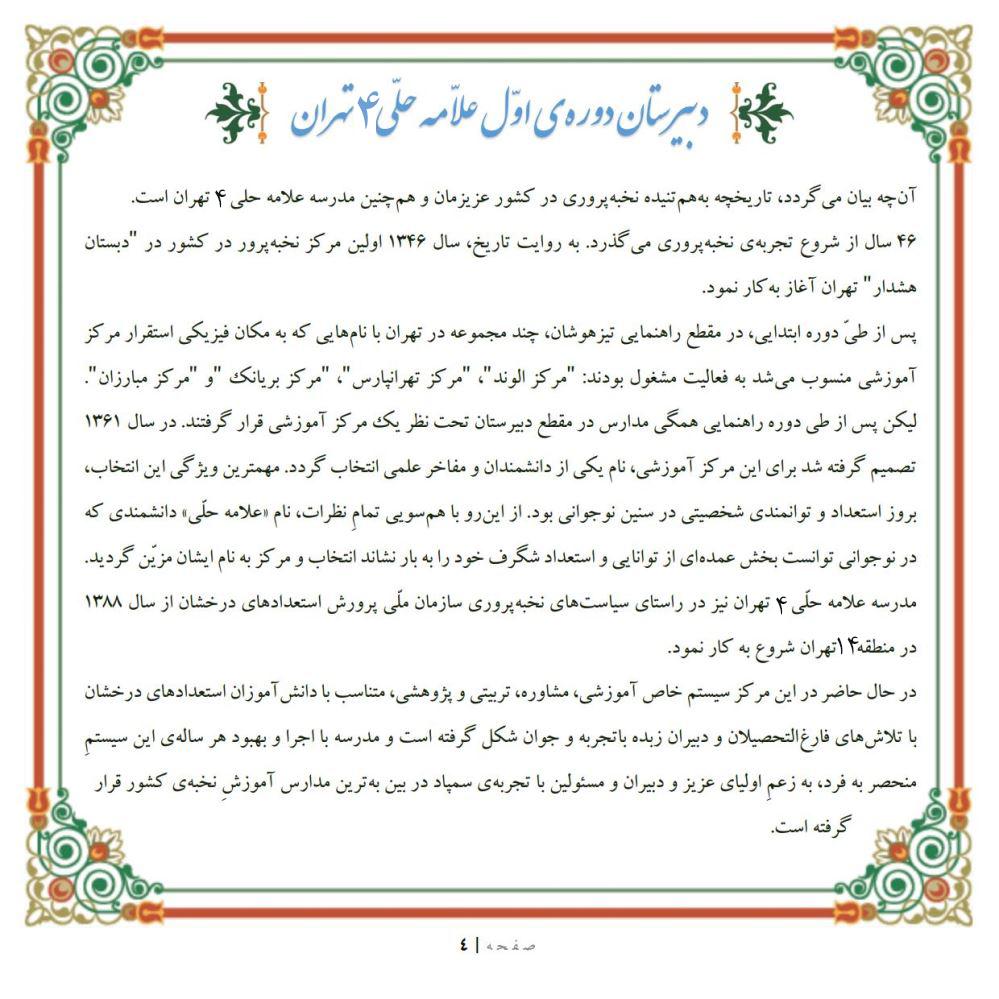 دبیرستان دوره‌ی اوّل علاّمه حلّی ۴ تهران
آن‌چه بیان می‌گردد، تاریخچه به‌هم‌تنیده نخبه‌پروری در کشور عزیزمان و هم‌چنین مدرسه علامه حلی ۴ تهران است.
۴۶ سال از شروع تجربه‌ی نخبه‌پروری می‌گذرد. به روایت تاریخ، سال ۱۳۴۶ اولین مرکز نخبه‌پرور در کشور در "دبستان
هشدار" تهران آغاز به‌کار نمود.
پس از طیّ دوره ابتدایی، در مقطع راهنمایی تیزهوشان، چند مجموعه در تهران با نام‌هایی که به مکان فیزیکی استقرار مرکز
آموزشی منسوب می‌شد به فعالیت مشغول بودند: "مرکز الوند"، "مرکز تهرانپارس"، "مرکز بریانک "و "مرکز مبارزان".
لیکن پس از طی دوره راهنمایی همگی مدارس در مقطع دبیرستان تحت نظر یک مرکز آموزشی قرار گرفتند. در سال ۱۳۶۱
تصمیم گرفته شد برای این مرکز آموزشی، نام یکی از دانشمندان و مفاخر علمی انتخاب گردد. مهمترین ویژگی این انتخاب،
بروز استعداد و توانمندی شخصیتی در سنین نوجوانی بود. از این‌رو با هم‌سویی تمامِ نظرات، نام «علامه حلّی» دانشمندی که
در نوجوانی توانست بخش عمده‌ای از توانایی و استعداد شگرف خود را به بار نشاند انتخاب و مرکز به نام ایشان مزیّن گردید.
مدرسه علامه حلّی ۴ تهران نیز در راستای سیاست‌های نخبه‌پروری سازمان ملّی پرورش استعدادهای درخشان از سال ۱۳۸۸
در منطقه۱۴تهران شروع به کار نمود.
در حال حاضر در این مرکز سیستم خاص آموزشی، مشاوره، تربیتی و پژوهشی، متناسب با دانش‌آموزان استعدادهای درخشان
با تلاش‌های فارغ‌التحصیلان و دبیران زبده باتجربه و جوان شکل گرفته است و مدرسه با اجرا و بهبود هر ساله‌ی این سیستمِ
منحصر به فرد، به زعمِ اولیای عزیز و دبیران و مسئولین با تجربه‌ی سمپاد در بین به‌ترین مدارس آموزشِ نخبه‌ی کشور قرار
گرفته است.
صفحه | ٤